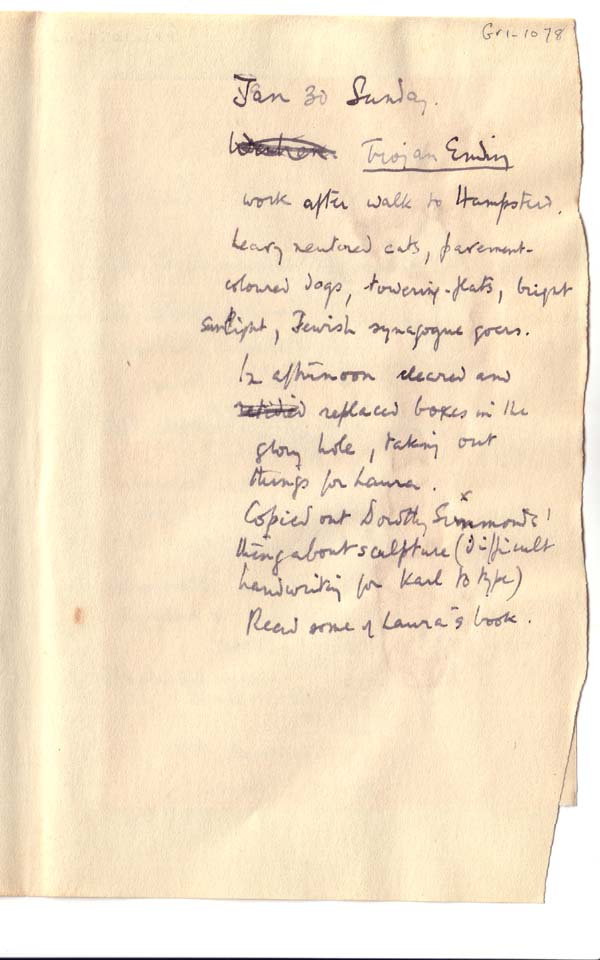 Gr1-1078
Jan 30 Sunday.
Trojan Ending
work after walk to Hampstead.
heavy neutered cats, pavement-
coloured dogs, towering-flats, bright
sunlight, Jewish synagogue goers.
In afternoon cleared and
replaced boxes in the
glory hole, taking out
things for Laura.
Copied out Dorothy Simmonds'
thing about sculpture (difficult
handwriting for Karl to type)
Read some of Laura's book.